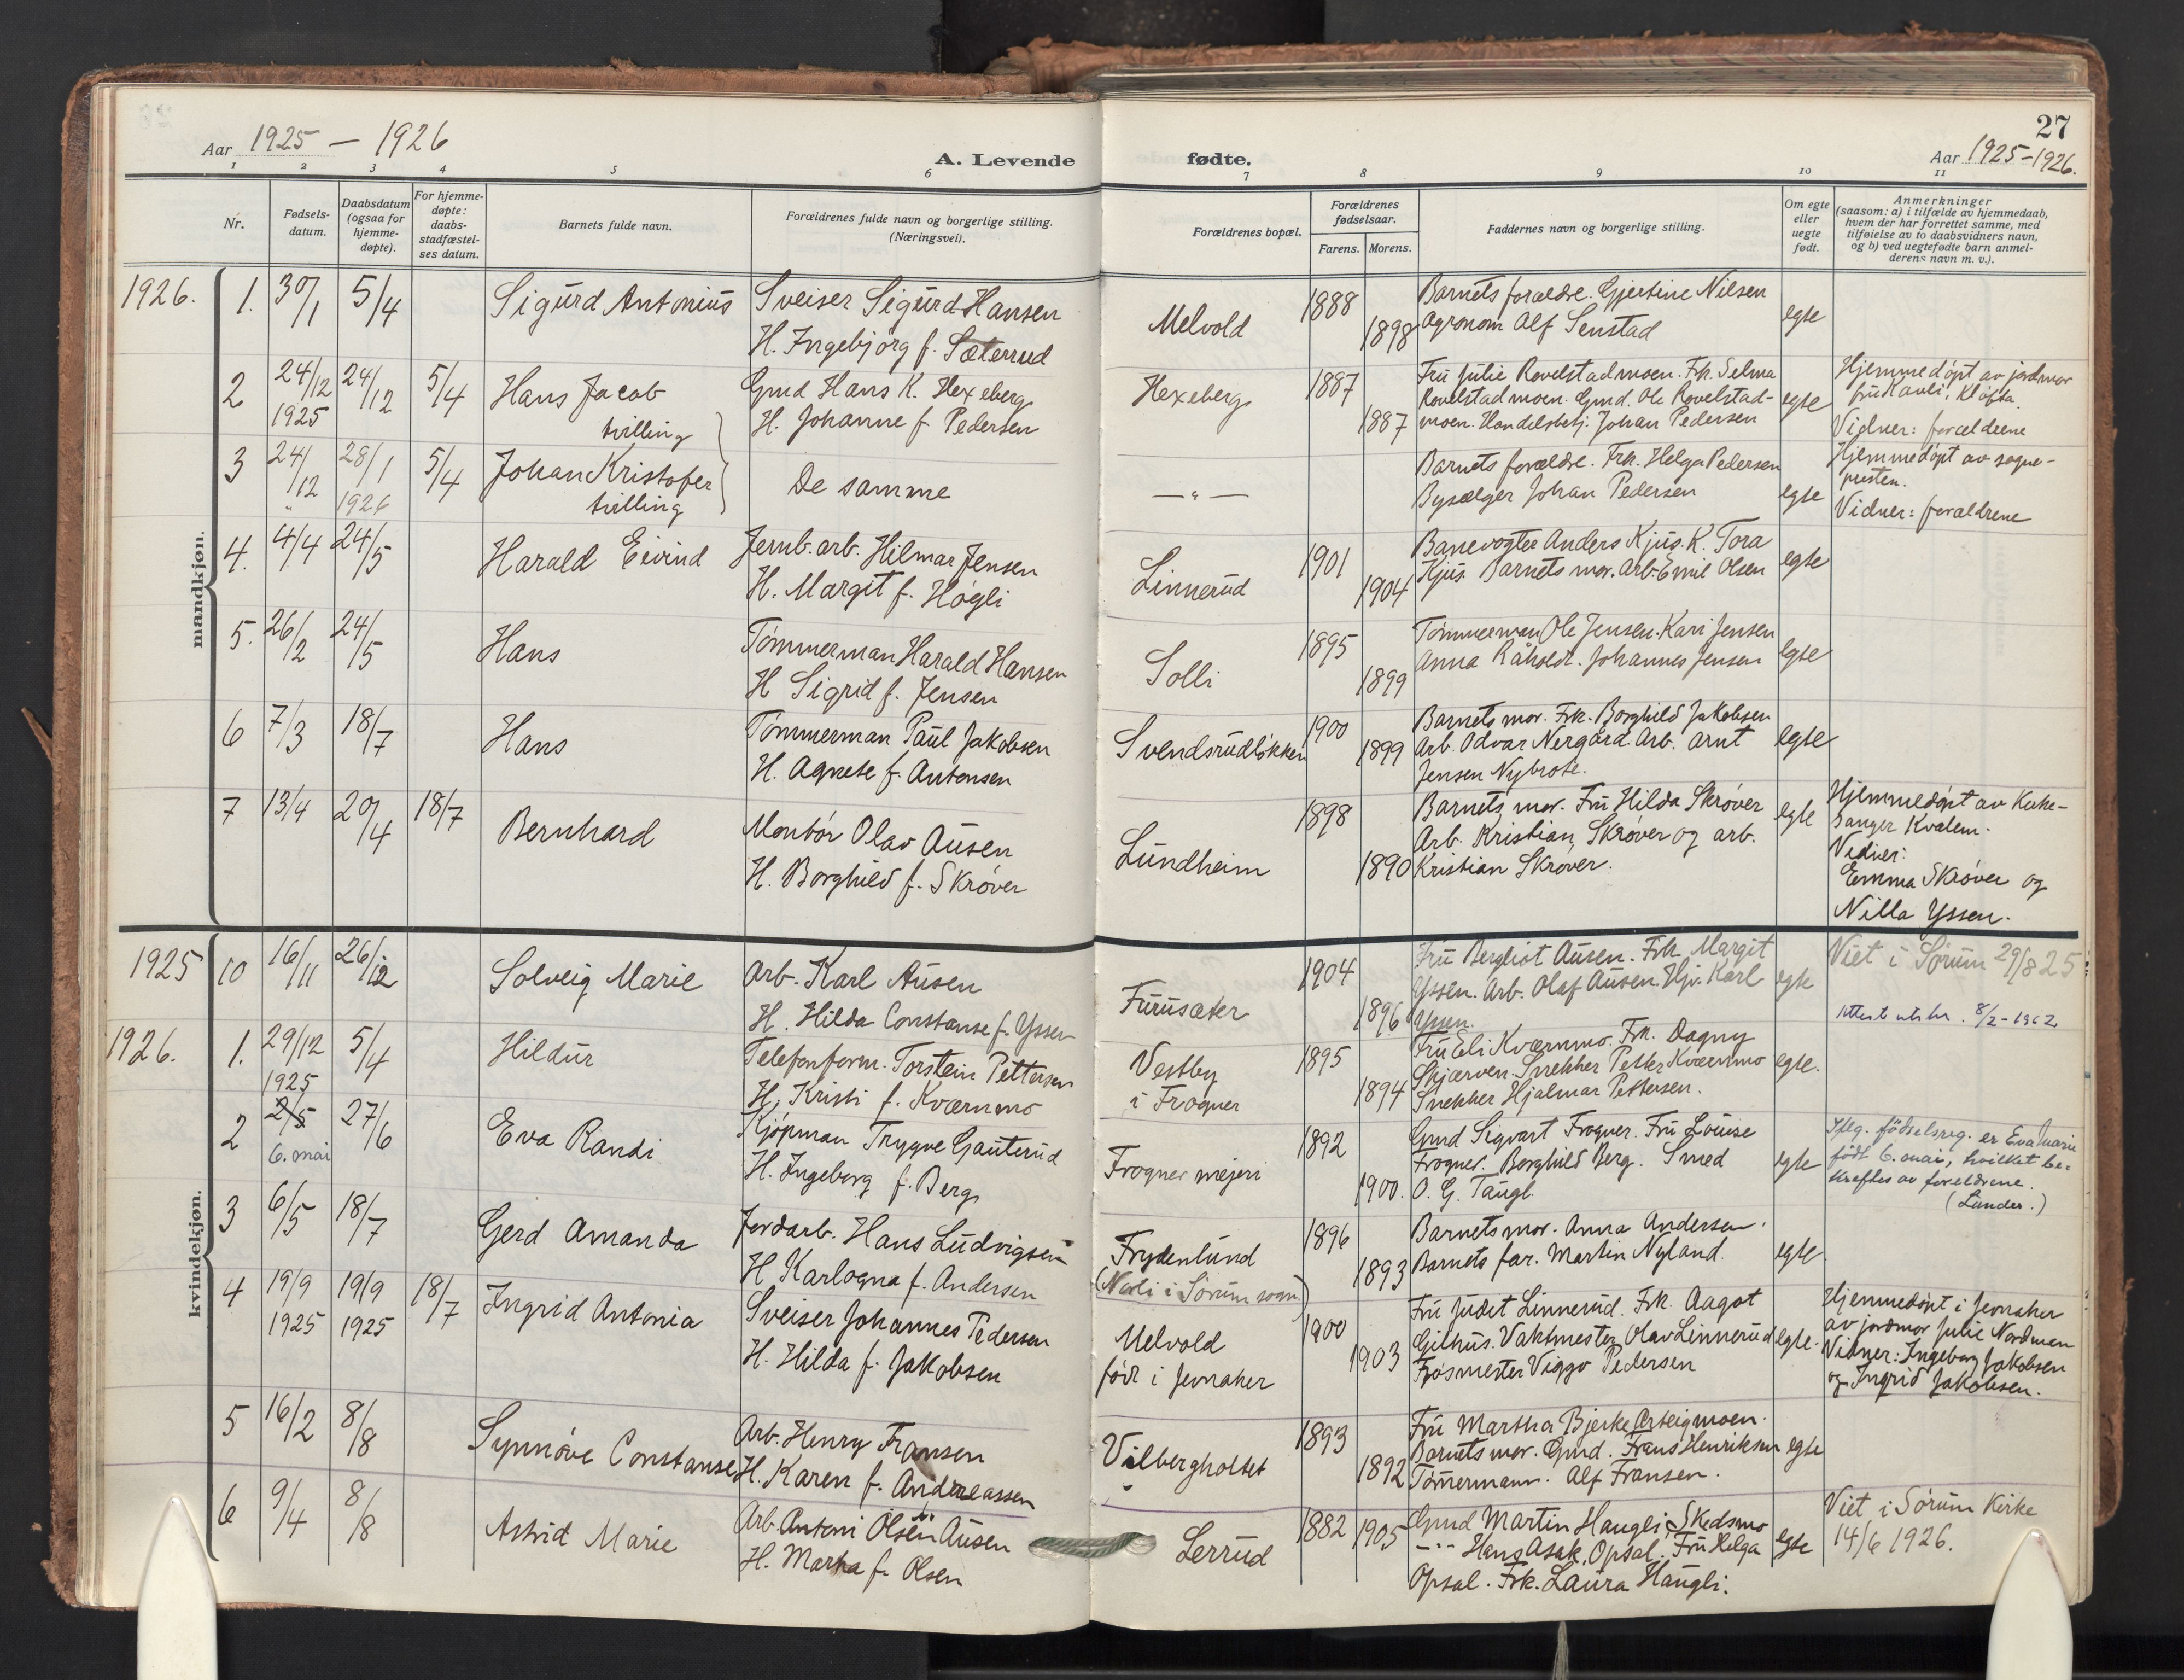 27
Aar 1925 — 1926
A. Levende
fødte.
Aar 1925-1926.
1 2 3 4 5 6 7 8 9 10 11
Nr.
Fødsels-
datum.
Daabsdatum
(ogsaa for
hjemme-
døpte).
For hjemme-
døpte:
daabs-
stadfæstel-
ses datum.
Barnets fulde navn.
Forældrenes fulde navn og borgerlige stilling.
(Næringsvei).
Forældrenes bopæl.
Forældrenes
fødselsaar.
Farens. Morens.
Faddernes navn og borgerlige stilling.
Om egte
eller
uegte
født.
Anmerkninger
(saasom: a) i tilfælde av hjemmedaab,
hvem der har forrettet samme, med
tilføielse av to daabsvidners navn,
og b) ved uegtefødte barn anmel-
derens navn m. v.).
mandkjøn.
1926. 1. 30/1 5/4 Sigurd Antonius
Sveiser Sigurd Hansen
H. Ingebjørg f. Sæterrud
Melvold 1888 1898
Barnets forældre. Gjertine Nilsen
Agronom Alf Senstad
egte
2 24/12 1925 24/12 5/4 Hans Jacob
tvilling
Gmd Hans K. Hexeberg
H. Johanne f. Pedersen
Hexeberg 1887 1887
Fru Julie Rovelstadmoen. Frk. Selma
Rovelstadmoen. Gmd. Ole Rovelstad-
moen. Handelsbetj. Johan Pedersen
egte
Hjemmedøpt av jordmor
fru Kauli, Kløfta.
Vidner: forældrene
3 24/12 " 28/1 1926 5/4 Johan Kristofer
tvilling
De samme
— " —
Barnets forældre. Frk. Helga Pedersen
Bysælger Johan Pedersen
egte
Hjemmedøpt av sogne-
presten.
Vidner: forældrene
4. 4/4 24/5 Harald Eivind
Jernb.arb. Hilmar Jensen
H. Margit f. Høgli
Linnerud 1901 1904
Banevogter Anders Kjus. K. Tora
Kjus. Barnets mor. Arb. Emil Olsen
egte
5. 26/2 24/5 Hans
Tømmerman Harald Hansen
H Sigrid f. Jensen
Solli 1895 1899
Tømmerman Ole Jensen. Kari Jensen
Anna Råholdt. Johannes Jensen
egte
6 7/3 18/7 Hans
Tømmerman Paul Jakobsen
H. Agnete f. Antonsen
Svendsrudløkken 1900 1899
Barnets mor. Frk. Borghild Jakobsen
Arb. Odvar Nergård. Arb. Arnt
Jensen Nybrote.
egte
7 13/4 20/4 18/7 Bernhard
Montør Olav Ausen
H. Borghild f. Skrøver
Lundheim 1898 1890
Barnets mor. Fru Hilda Skrøver
Arb. Kristian Skrøver og arb.
Kristian Skrøver.
egte
Hjemmedøpt av Kirke-
sanger Kvalem.
Vidner:
Emma Skrøver og
Nilla Yssen.
kvindekjøn.
1925 10 16/11 26/12 Solveig Marie
Arb. Karl Ausen
H. Hilda Constanse f. Yssen
Furusæter 1904 1896
Fru Bergliot Ausen. Frk Margit
Yssen. Arb. Olaf Ausen. Hjv. Karl
Yssen.
egte
Viet i Sørum 29/8 25
Attest utstr. 8/2-1962
1926. 1. 29/12 1925 5/4 Hildur
Telefonform. Torstein Pettersen
H. Kristi f. Kværnmo
Vestby
i Frogner
1895 1894
Fru Eli Kværnmo. Frk. Dagny
Skjærven. Snekker Petter Kværnmo
Snekker Hjalmar Pettersen.
egte.
2 2/5 6. mai 27/6 Eva Randi
Kjøpman Trygve Gauterud
H. Ingeborg f. Berg
Frogner mejeri 1892 1900.
Gmd Sigvart Frogner. Fru Louise
Frogner. Borghild Berg. Smed
O. G. Taugl.
egte
Iflg. fødselsreg. er Eva Marie
født 6. mai, hvilket be-
kreftes av foreldrene.
(Lunder.)
3 6/5 18/7 Gerd Amanda
Jordarb. Hans Ludvigsen
H Karlogna f. Andersen
Frydenlund
(Nerli i Sørum sogn)
1896 1893
Barnets mor. Anna Andersen.
Barnets far. Martin Nyland.
egte
4 19/9 1925 19/9 1925 18/7 Ingrid Antonia
Sveiser Johannes Pedersen
H. Hilda f. Jakobsen
Melvold
født i Jevnaker
1900 1903
Fru Judit Linnerud. Frk. Aagot
Gilhus. Vaktmester Olav Linnerud
Frøsmester Viggo Pedersen
egte.
Hjemmedøpt i Jevnaker
av jordmor Julie Nordmen
Vidner: Ingeborg Jakobsen
og Ingrid Jakobsen.
5 16/2 8/8 Synnøve Constanse
Arb. Henry Fransen
H. Karen f. Andreassen
Vilbergholtet 1893 1892
Fru Martha Bjerke Arteigmoen.
Barnets mor. Gmd. Frans Henriksen
Tømmermann. Alf Fransen.
egte
6 9/4 8/8 Astrid Marie
Arb. Antoni Olsen Ausen
H. Marha f. Olsen
Lerrud 1882 1905
Gmd Martin Haugli, Skedsmo
-"- Hans Asak, Opsal. Fru Helga
Opsal. Frk. Laura Haugli.
egte
Viet i Sørum Kirke
14/6 1926.